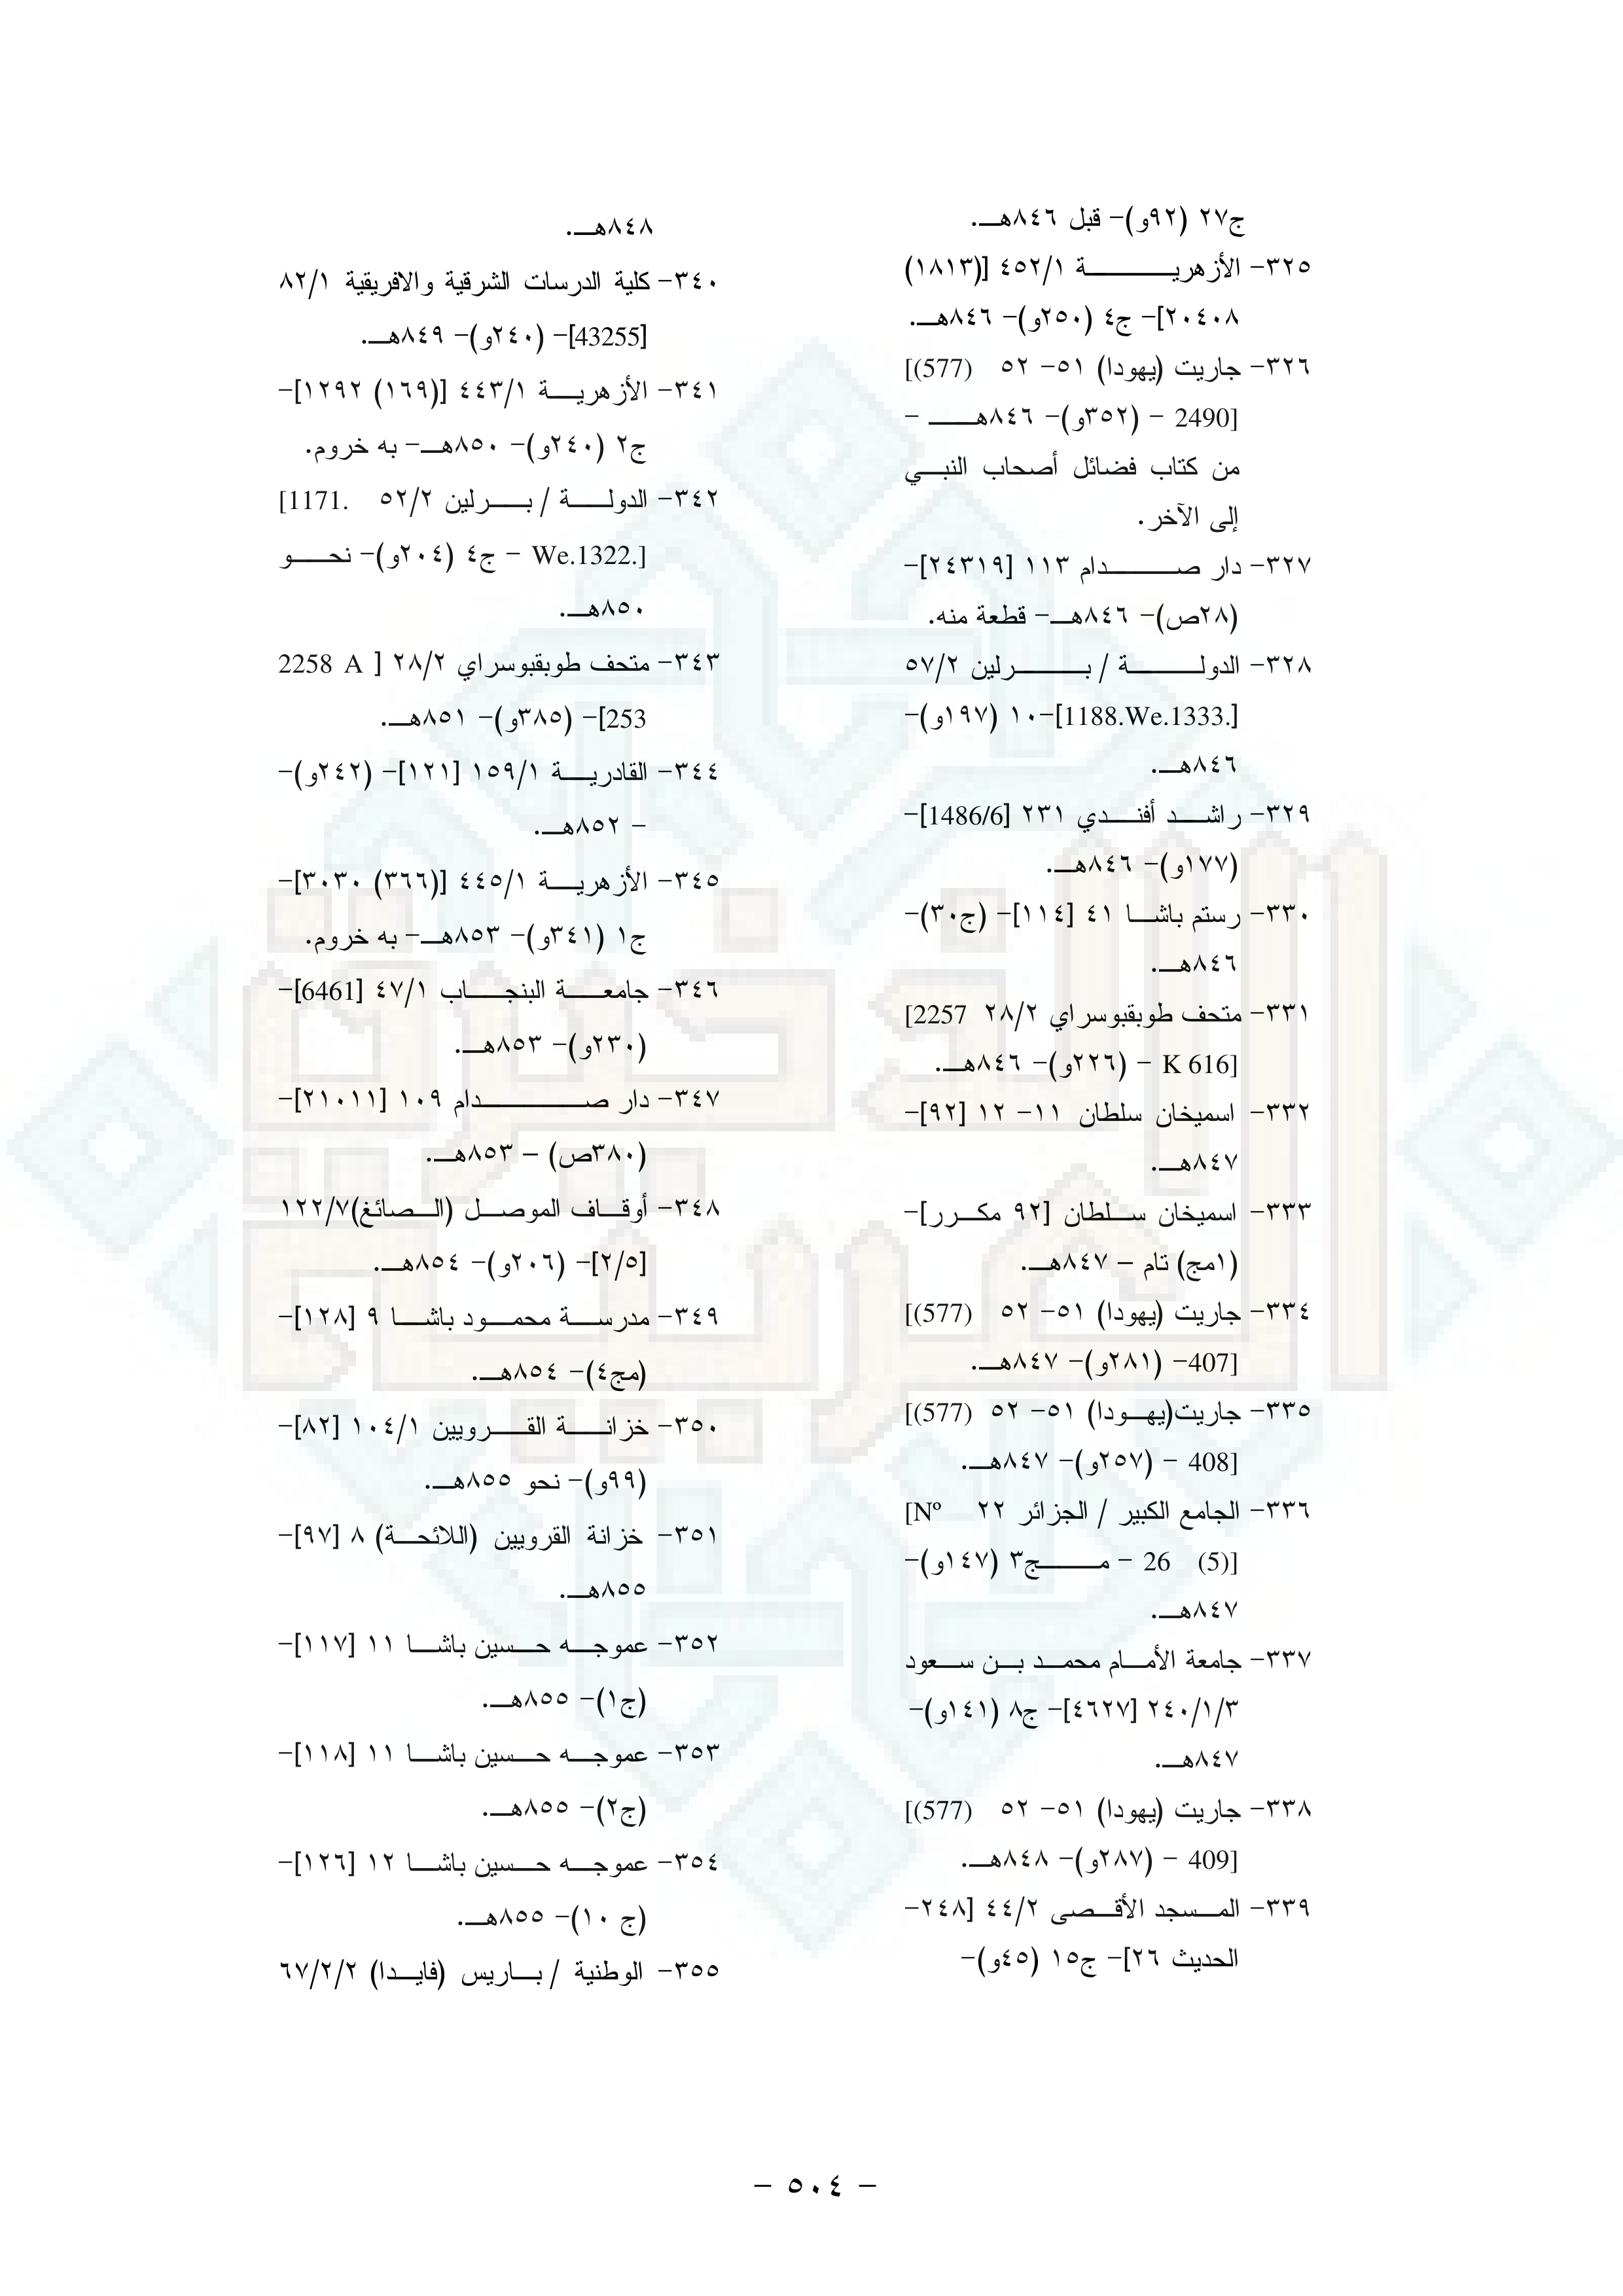 ج٢٧ (٩٢و)- قبل ٨٤٦هـ.
٣٢٥- الأزهرية ٤٥٢/١ [(١٨١٣)
٢٠٤٠٨]- ج٤ (٢٥٠و)- ٨٤٦هـ.
٣٢٦- جاريت (يهودا) ٥١- ٥٢ [(577)
2490] - (٣٥٢و)- ٨٤٦هـ -
من كتاب فضائل أصحاب النبي
إلى الآخر.
٣٢٧- دار صدام ١١٣ [٢٤٣١٩]-
(٢٨ص)- ٨٤٦هـ- قطعة منه.
٣٢٨- الدولة / برلين ٥٧/٢
[1188.We.1333.]-١٠ (١٩٧و)-
٨٤٦هـ.
٣٢٩- راشد أفندي ٢٣١ [1486/6]-
(١٧٧و)- ٨٤٦هـ.
٣٣٠- رستم باشا ٤١ [١١٤]- (ج٣٠)-
٨٤٦هـ.
٣٣١- متحف طوبقبوسراي ٢٨/٢ [2257
K 616] - (٢٢٦و)- ٨٤٦هـ.
٣٣٢- اسميخان سلطان ١١- ١٢ [٩٢]-
٨٤٧هـ.
٣٣٣- اسميخان سلطان [٩٢ مكرر]-
(١مج) تام – ٨٤٧هـ.
٣٣٤- جاريت (يهودا) ٥١- ٥٢ [(577)
407]- (٢٨١و)- ٨٤٧هـ.
٣٣٥- جاريت(يهودا) ٥١- ٥٢ [(577)
408] - (٢٥٧و)- ٨٤٧هـ.
٣٣٦- الجامع الكبير / الجزائر ٢٢ [Nº
26 (5)] - مج٣ (١٤٧و)-
٨٤٧هـ.
٣٣٧- جامعة الأمام محمد بن سعود
٢٤٠/١/٣ [٤٦٢٧]- ج٨ (١٤١و)-
٨٤٧هـ.
٣٣٨- جاريت (يهودا) ٥١- ٥٢ [(577)
409] - (٢٨٧و)- ٨٤٨هـ.
٣٣٩- المسجد الأقصى ٤٤/٢ [٢٤٨-
الحديث ٢٦]- ج١٥ (٤٥و)-
٨٤٨هـ.
٣٤٠- كلية الدرسات الشرقية والافريقية ٨٢/١
[43255]- (٢٤٠و)- ٨٤٩هـ.
٣٤١- الأزهرية ٤٤٣/١ [(١٦٩) ١٢٩٢]-
ج٢ (٢٤٠و)- ٨٥٠هـ- به خروم.
٣٤٢- الدولة / برلين ٥٢/٢ [1171.
We.1322.] - ج٤ (٢٠٤و)- نحو
٨٥٠هـ.
٣٤٣- متحف طوبقبوسراي ٢٨/٢ [ 2258 A
253]- (٣٨٥و)- ٨٥١هـ.
٣٤٤- القادرية ١٥٩/١ [١٢١]- (٢٤٢و)-
- ٨٥٢هـ.
٣٤٥- الأزهرية ٤٤٥/١ [(٣٦٦) ٣٠٣٠]-
ج١ (٣٤١و)- ٨٥٣هـ- به خروم.
٣٤٦- جامعة البنجاب ٤٧/١ [6461]-
(٢٣٠و)- ٨٥٣هـ.
٣٤٧- دار صدام ١٠٩ [٢١٠١١]-
(٣٨٠ص) – ٨٥٣هـ.
٣٤٨- أوقاف الموصل (الصائغ)١٢٢/٧
[٢/٥]- (٢٠٦و)- ٨٥٤هـ.
٣٤٩- مدرسة محمود باشا ٩ [١٢٨]-
(مج٤)- ٨٥٤هـ.
٣٥٠- خزانة القرويين ١٠٤/١ [٨٢]-
(٩٩و)- نحو ٨٥٥هـ.
٣٥١- خزانة القرويين (اللائحة) ٨ [٩٧]-
٨٥٥هـ.
٣٥٢- عموجه حسين باشا ١١ [١١٧]-
(ج١)- ٨٥٥هـ.
٣٥٣- عموجه حسين باشا ١١ [١١٨]-
(ج٢)- ٨٥٥هـ.
٣٥٤- عموجه حسين باشا ١٢ [١٢٦]-
(ج ١٠)- ٨٥٥هـ.
٣٥٥- الوطنية / باريس (فايدا) ٦٧/٢/٢
- ٥٠٤ -
الذخيرة
العربية